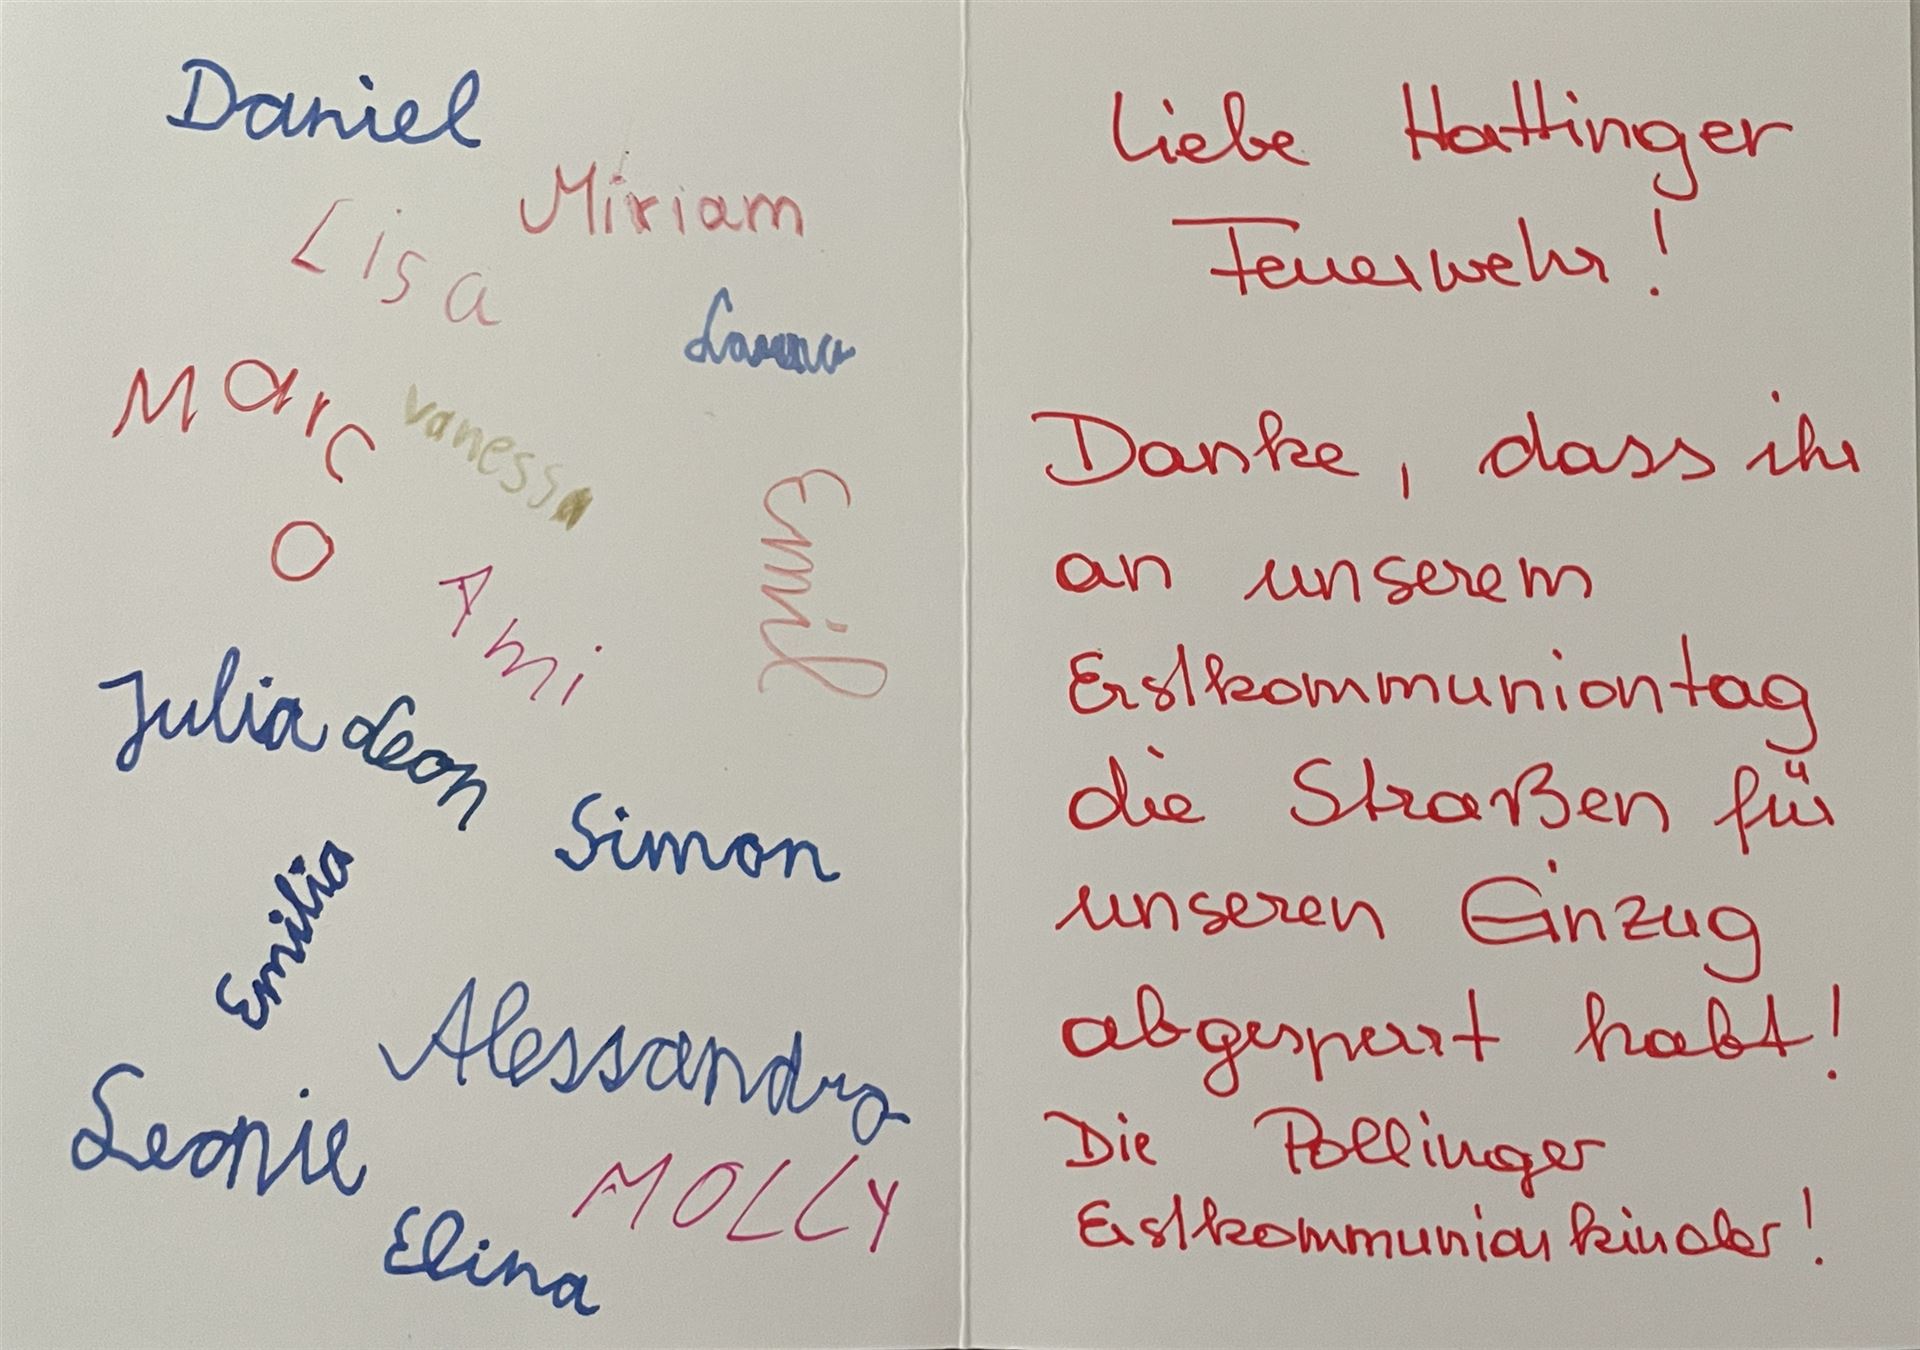 Daniel
Miriam
Lisa
Marco
Vanessa
Emil
Ami
Julia
Leon
Simon
Emilia
Alessandro
Leonie
MOLLY
Elina
Liebe Hattinger
Feuerwehr!
Danke, dass ihr
an unserem
Erstkommuniontag
die Straßen für
unseren Einzug
abgesperrt habt!
Die Pollinger
Erstkommunionkinder!